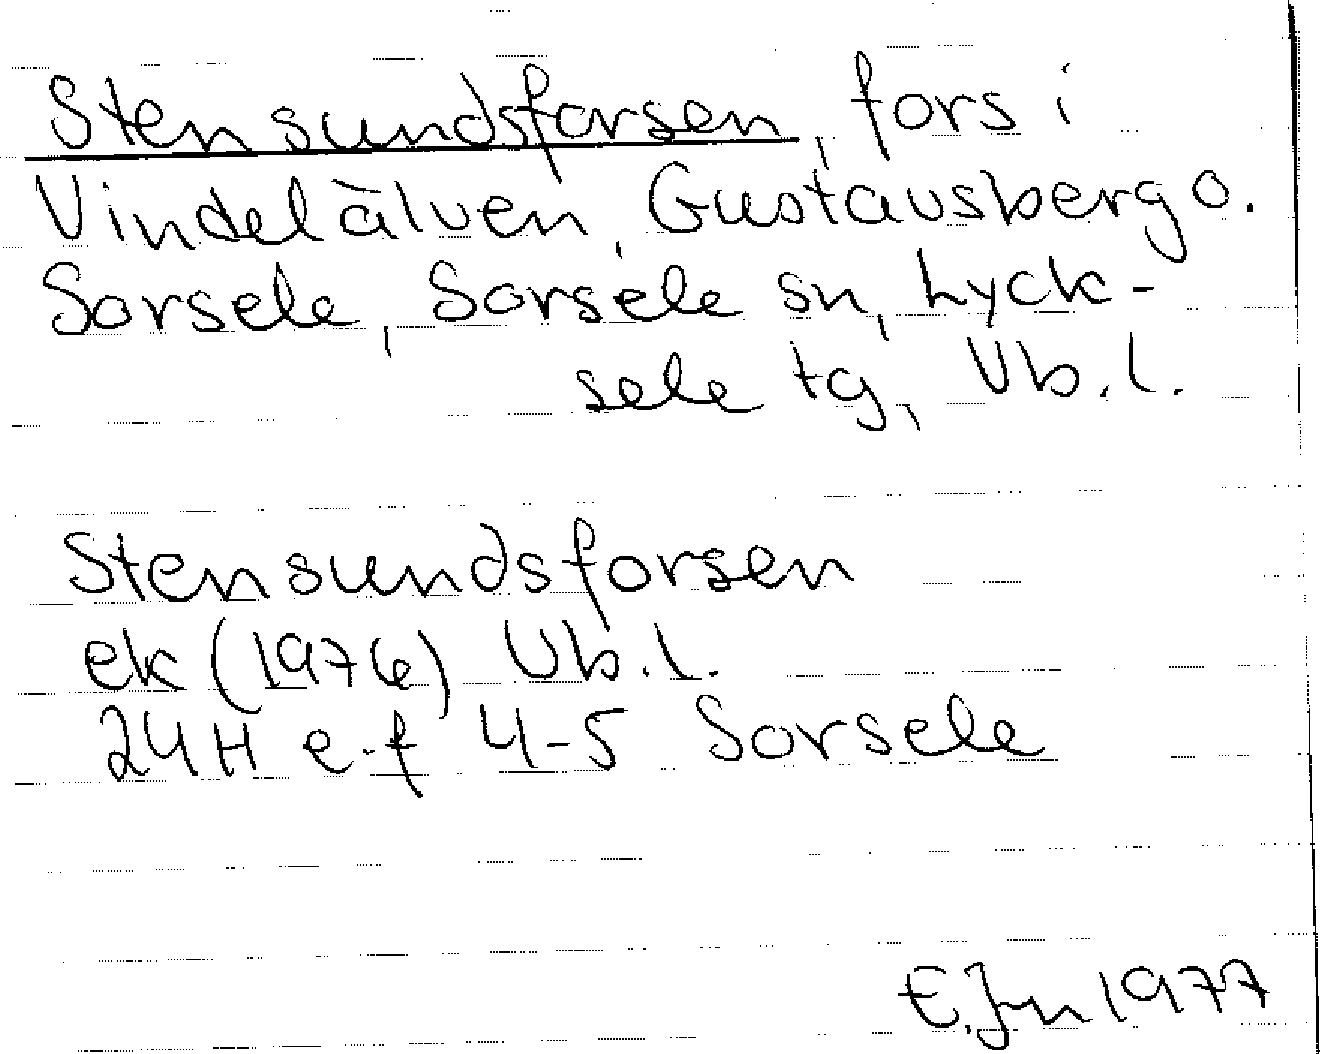 Stensundsforsen, fors i
Vindelälven, Gustavsberg o.
Sorsele, Sorsele sn, Lyck-
sele tg, Vb. l.
Stensundsforsen
ek (1976) Vb. l.
24H e-f 4-5 Sorsele
E. Jn 1977